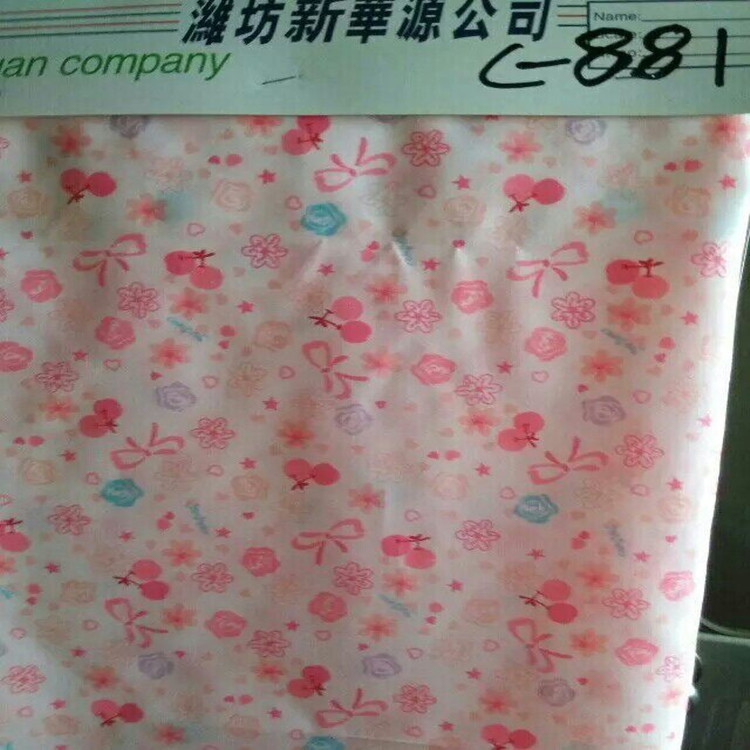 濰坊新華源公司
uan company
Name:
C-881